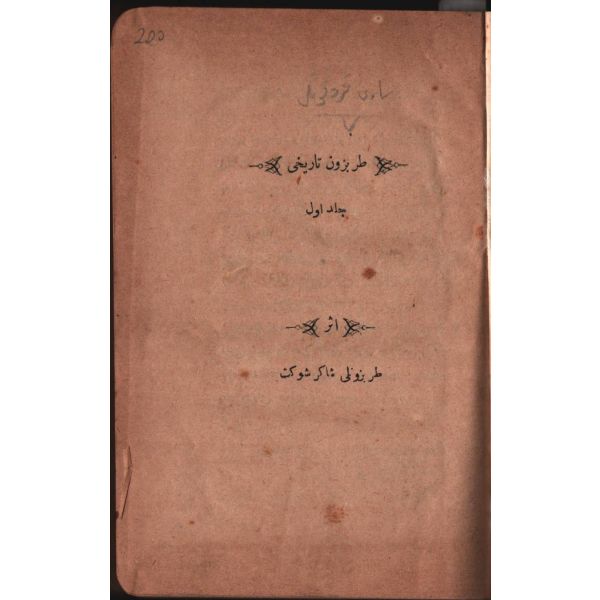 200
طربزون تاریخی
جلد اول
اثر
طربزونلی شاکر شوکت